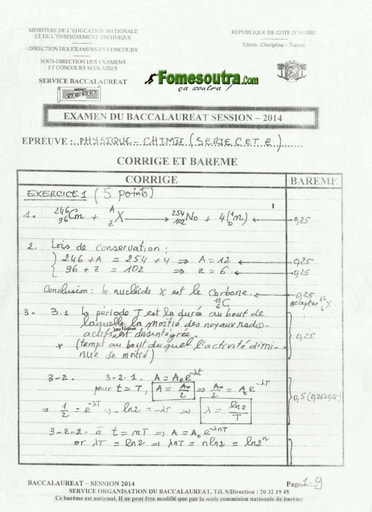 MINISTERE DE L'EDUCATION NATIONALE
ET DE L'ENSEIGNEMENT TECHNIQUE
DIRECTION DES EXAMENS ET CONCOURS
SOUS-DIRECTION DES EXAMENS
ET CONCOURS SCOLAIRES
SERVICE BACCALAUREAT
REPUBLIQUE DE COTE D'IVOIRE
Union - Discipline - Travail
Fomesoutra.com
ça soutra !
EXAMEN DU BACCALAUREAT SESSION – 2014
EPREUVE : PHYSIQUE - CHIMIE (SERIE C ET E)
CORRIGE ET BAREME
CORRIGE BAREME
EXERCICE 1 (5 points)
1. ²⁴⁶₉₆Cm + ᴬ_Z X → ²⁵⁴₁₀₂No + 4(¹₀n) 0,25
2. Lois de conservation :
246 + A = 254 + 4 ⇒ A = 12 0,25
96 + Z = 102 ⇒ Z = 6 0,25
Conclusion : le nucléide X est le Carbone. 0,25
¹²₆C accepter
3. 3.1 la période T est la durée au bout de
laquelle la moitié des noyaux radio-
actifs est désintégrée. 0,25
* (temps au bout duquel l'activité dimi-
nue de moitié)
3-2. 3-2-1. A = A₀e^-λT
pour t = T, A = A₀/2 ⇒ A₀/2 = A₀e^-λT
⇒ 1/2 = e^-λT ⇒ -ln2 = -λT ⇒ λ = ln2/T 0,5
3-2-2 à t = nT ⇒ A = A₀e^-λnT
or λT = ln2 ⇒ λnT = nln2 = ln2ⁿ
BACCALAUREAT – SESSION 2014 Page 1/9
SERVICE ORGANISATION DU BACCALAUREAT, Tél. S/Direction : 20 32 19 45
Ce barème est national. Il ne peut être modifié que par la seule commission nationale de barème